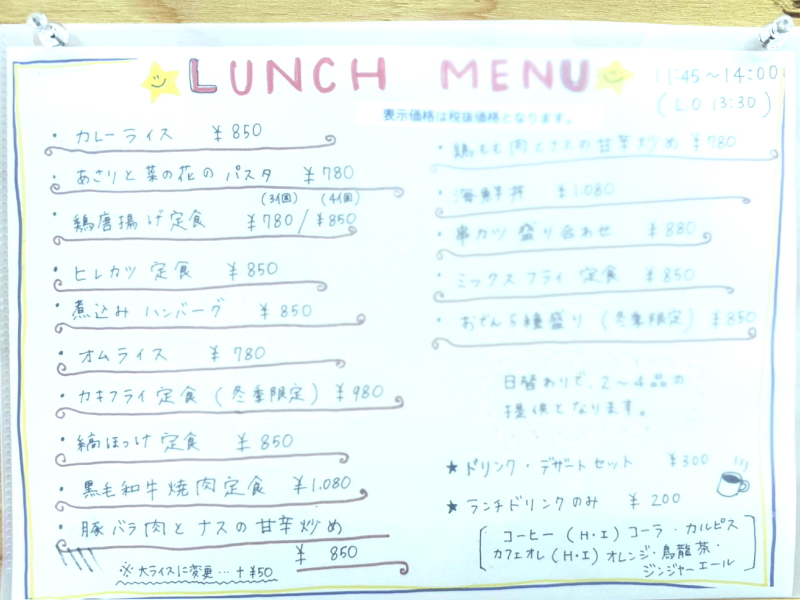 LUNCH MENU
11:45～14:00
(L.O 13:30)
表示価格は税抜価格となります。
・カレーライス ¥850
・あさりと菜の花の パスタ ¥780
(3個) (4個)
・鶏唐揚げ定食 ¥780/¥850
・ヒレカツ 定食 ¥850
・煮込み ハンバーグ ¥850
・オムライス ¥780
・カキフライ定食 (冬季限定) ¥980
・縞ほっけ定食 ¥850
・黒毛和牛焼肉定食 ¥1,080
・豚バラ肉と ナスの甘辛炒め
¥ 850
※大ライスに変更…+¥50
・鶏もも肉とナスの甘辛炒め ¥780
・海鮮丼 ¥1,080
・串カツ 盛り合わせ ¥880
・ミックスフライ 定食 ¥850
・おでん5種盛り (冬季限定) ¥850
日替わりで、2～4品の
提供となります。
★ドリンク・デザートセット ¥300
★ランチドリンクのみ ¥ 200
コーヒー (H・I) コーラ・カルピス
カフェオレ (H・I) オレンジ・烏龍茶・
ジンジャーエール